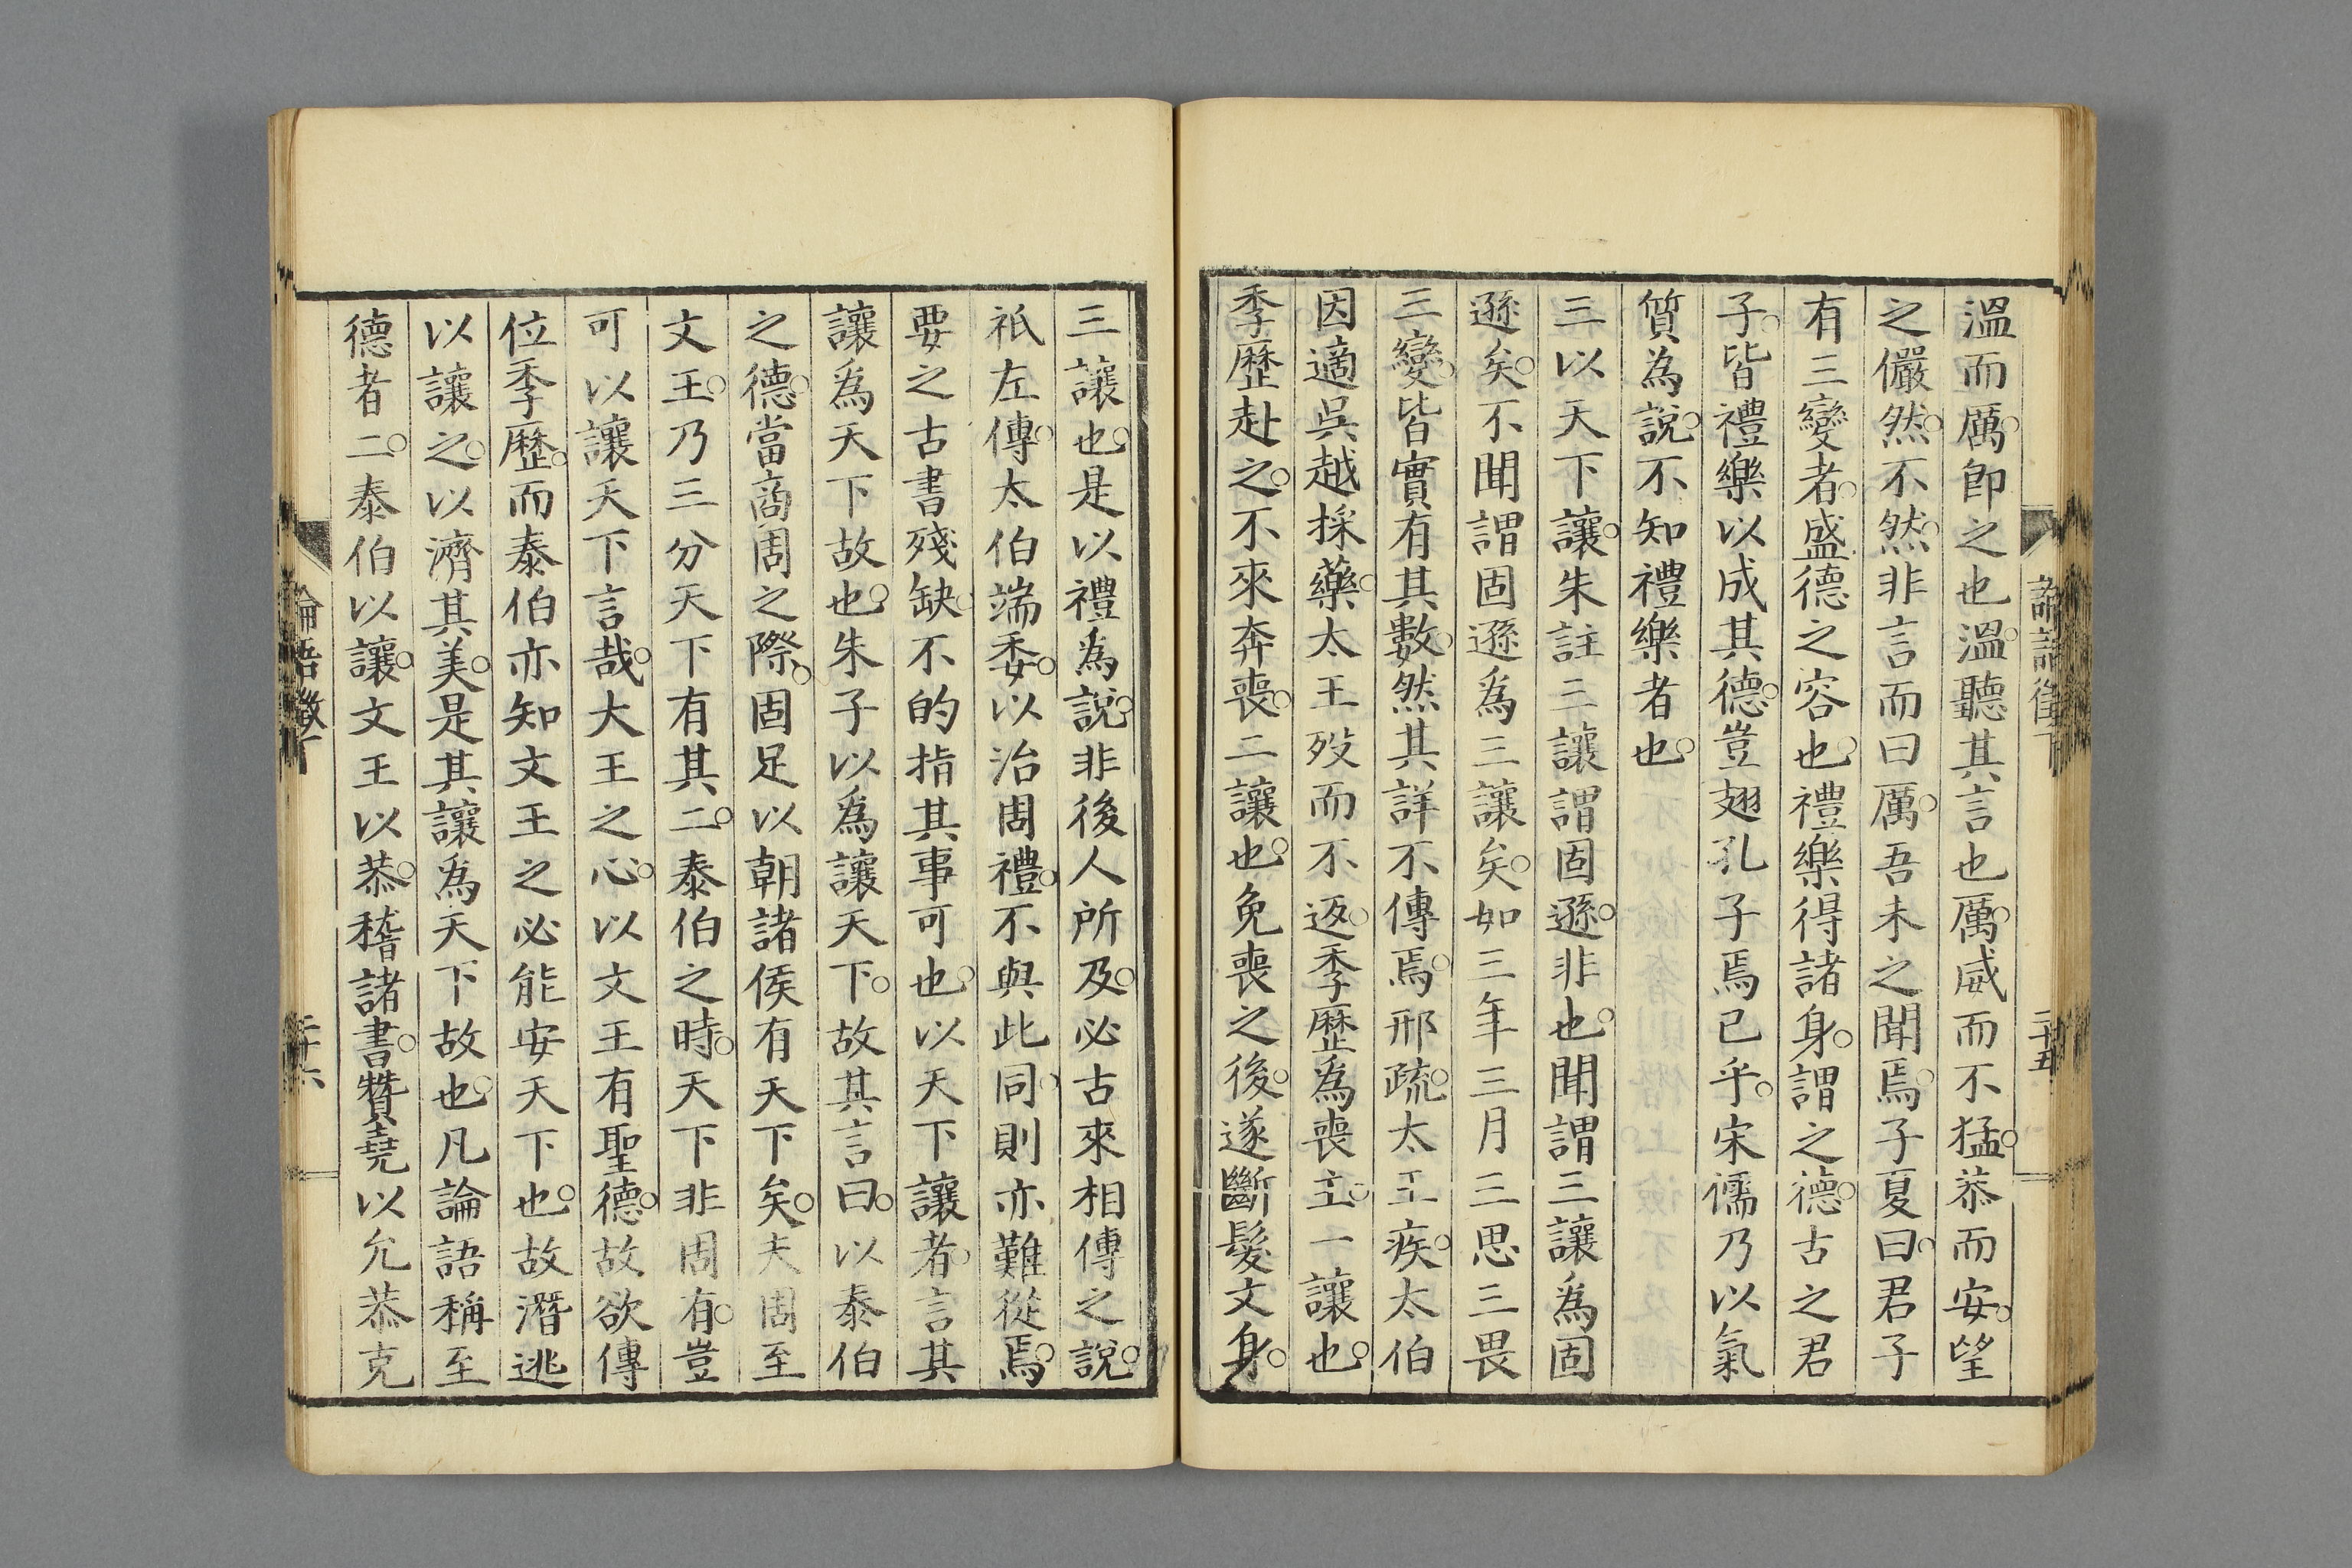 溫而厲。卽之也溫。聽其言也厲。威而不猛。恭而安。望
之儼然。不然。非言而曰厲。吾未之聞焉。子夏曰。君子
有三變者。盛德之容也。禮樂得諸身。謂之德。古之君
子。皆禮樂以成其德。豈翅孔子焉已乎。宋儒乃以氣
質為說。不知禮樂者也。
三以天下讓。朱註三讓謂固遜。非也。聞謂三讓爲固
遜矣。不聞謂固遜爲三讓矣。如三年三月三思三畏
三變。皆實有其數。然其詳不傳焉。邢疏。太王疾。太伯
因適吳越採藥。太王歿而不返。季歷爲喪主。一讓也。
季歷赴之。不來奔喪。二讓也。免喪之後。遂斷髮文身。
三讓也。是以禮爲說。非後人所及。必古來相傳之說。
祇左傳。太伯端委。以治周禮。不與此同。則亦難從焉。
要之古書殘缺。不的指其事可也。以天下讓者。言其
讓爲天下故也。朱子以爲讓天下。故其言曰。以泰伯
之德。當商周之際。固足以朝諸侯有天下矣。夫周至
文王。乃三分天下有其二。泰伯之時。天下非周有。豈
可以讓天下言哉。大王之心。以文王有聖德。故欲傳
位季歷。而泰伯亦知文王之必能安天下也。故潛逃
以讓之。以濟其美。是其讓爲天下故也。凡論語稱至
德者二。泰伯以讓。文王以恭。稽諸書。贊堯以允恭克
論語徵丁
二十五
論語徵丁
二十六